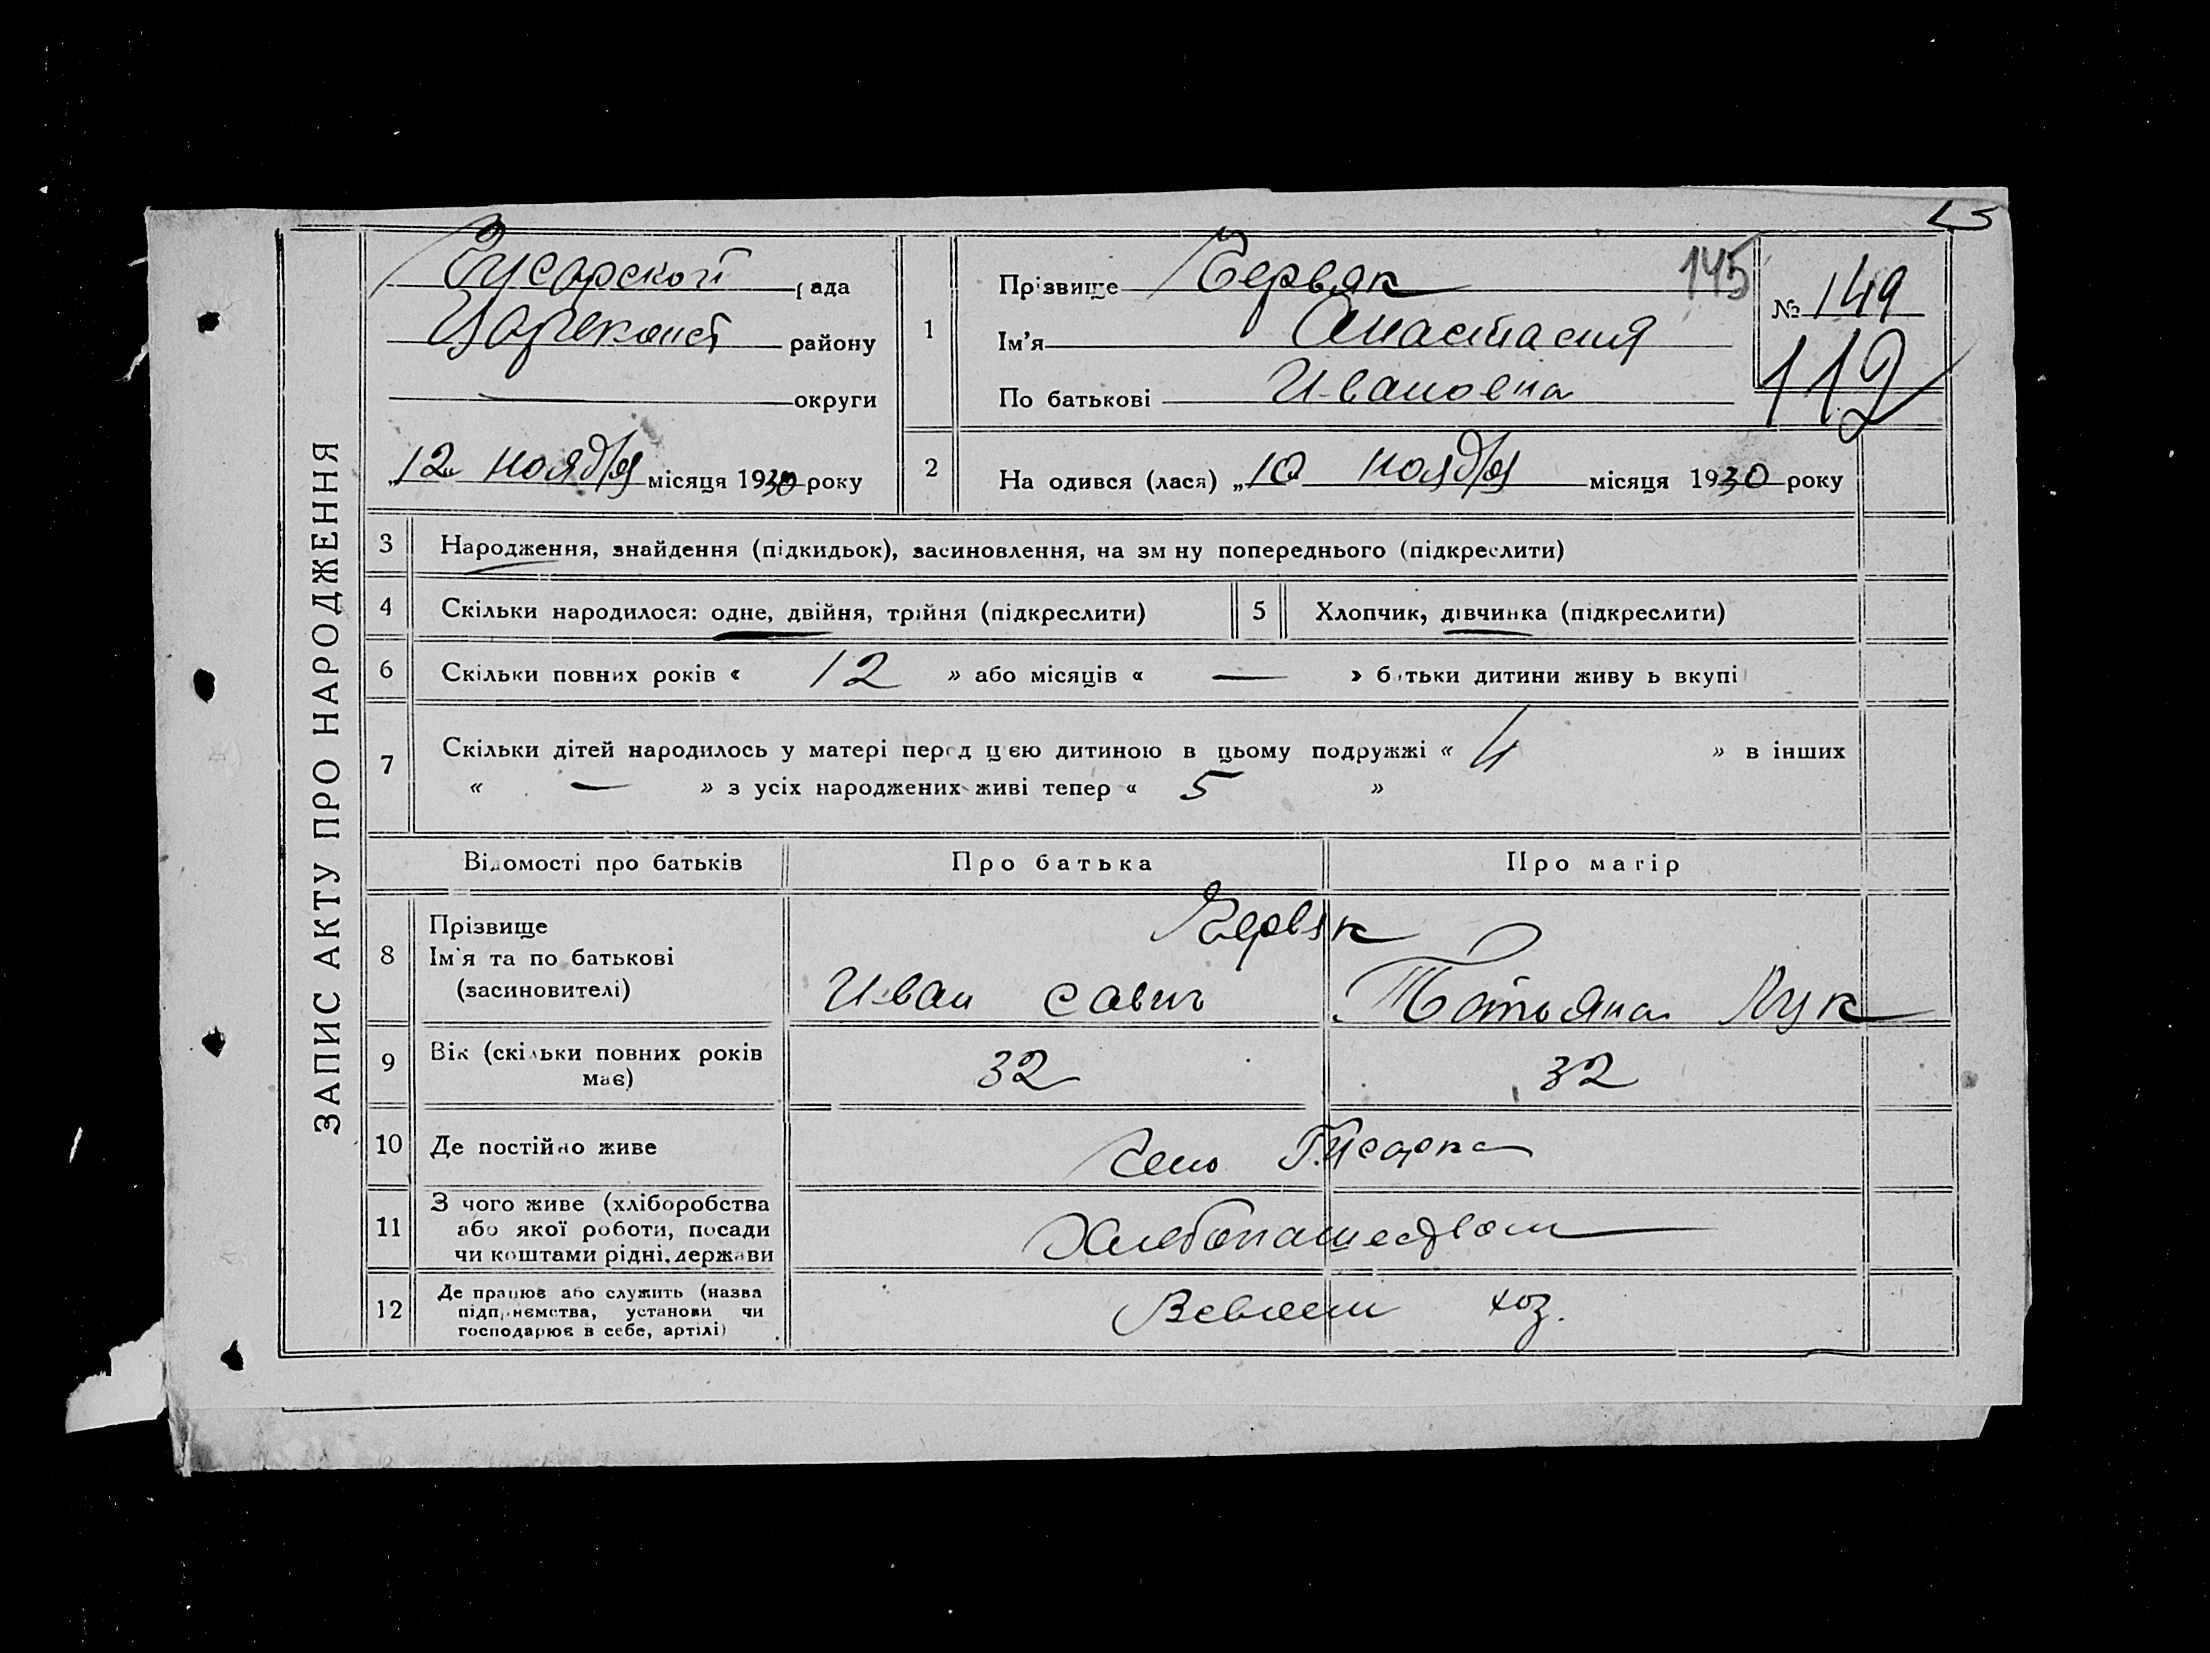 ЗАПИС АКТУ ПРО НАРОДЖЕННЯ
Гусарской рада
района
округи
„12 ноября місяця 1930 року
1
Прізвище Червяк
Ім’я Анастасия
По батькові Ивановна
145
№ 149
112
2
На одився (лася) „10 ноября місяця 1930 року
3 Народження, знайдення (підкидьок), засиновлення, на зм ну попереднього (підкреслити)
4 Скільки народилося: одне, двійня, трійня (підкреслити) 5 Хлопчик, дівчинка (підкреслити)
6 Скільки повних років « 12 » або місяців « — » батьки дитини живу ь вкупі
7 Скільки дітей народилось у матері перед цією дитиною в цьому подружжі « 4 » в інших
« — » з усіх народжених живі тепер « 5 »
Відомості про батьків Про батька Про матір
8 Прізвище
Ім’я та по батькові
(засиновителі)
Червяк
Иван Савич Татьяна Лук
9 Вік (скільки повних років
має)
32 32
10 Де постійно живе Село Гусарка
11 З чого живе (хліборобства
або якої роботи, посади
чи коштами рідні, держави
Хлебопашеством
12 Де працює або служить (назва
підприємства, установи чи
господарює в себе, артілі)
Всвоем хоз.